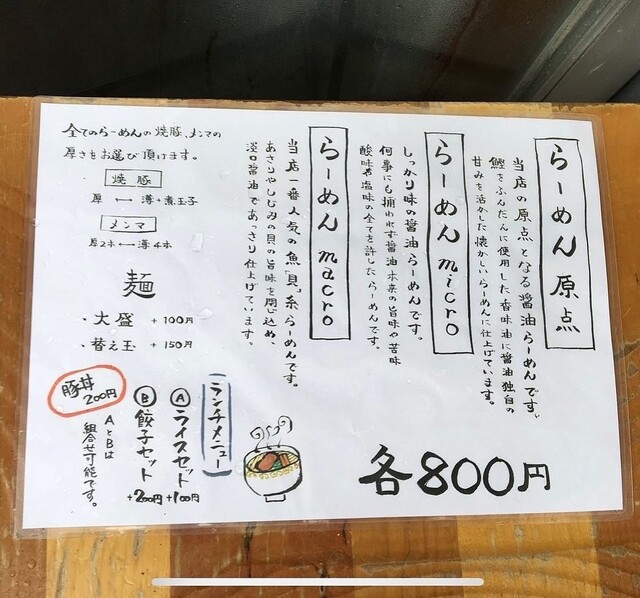 らーめん 原点
当店の原点となる醤油らーめんです。
鰹をふんだんに使用した香味油に醤油独自の
甘みを活かした懐かしいらーめんに仕上げています。
らーめん micro
しっかり味の醤油らーめんです。
何事にも捕われず醤油本来の旨味や苦味
酸味や塩味の全てを許したらーめんです。
らーめん macro
当店一番人気の魚貝系らーめんです。
あさりやしじみの貝の旨味を閉じ込め、
淡口醤油であっさり仕上げています。
各800円
全てのらーめんの焼豚、メンマの
厚さをお選び頂けます。
焼豚
厚 ←→ 薄+煮玉子
メンマ
厚2本 ←→ 薄4本
麺
・大盛 +100円
・替え玉 +150円
ランチメニュー
Ⓐライスセット +100円
Ⓑ餃子セット +200円
AとBは
組合せ可能です。
豚丼
200円